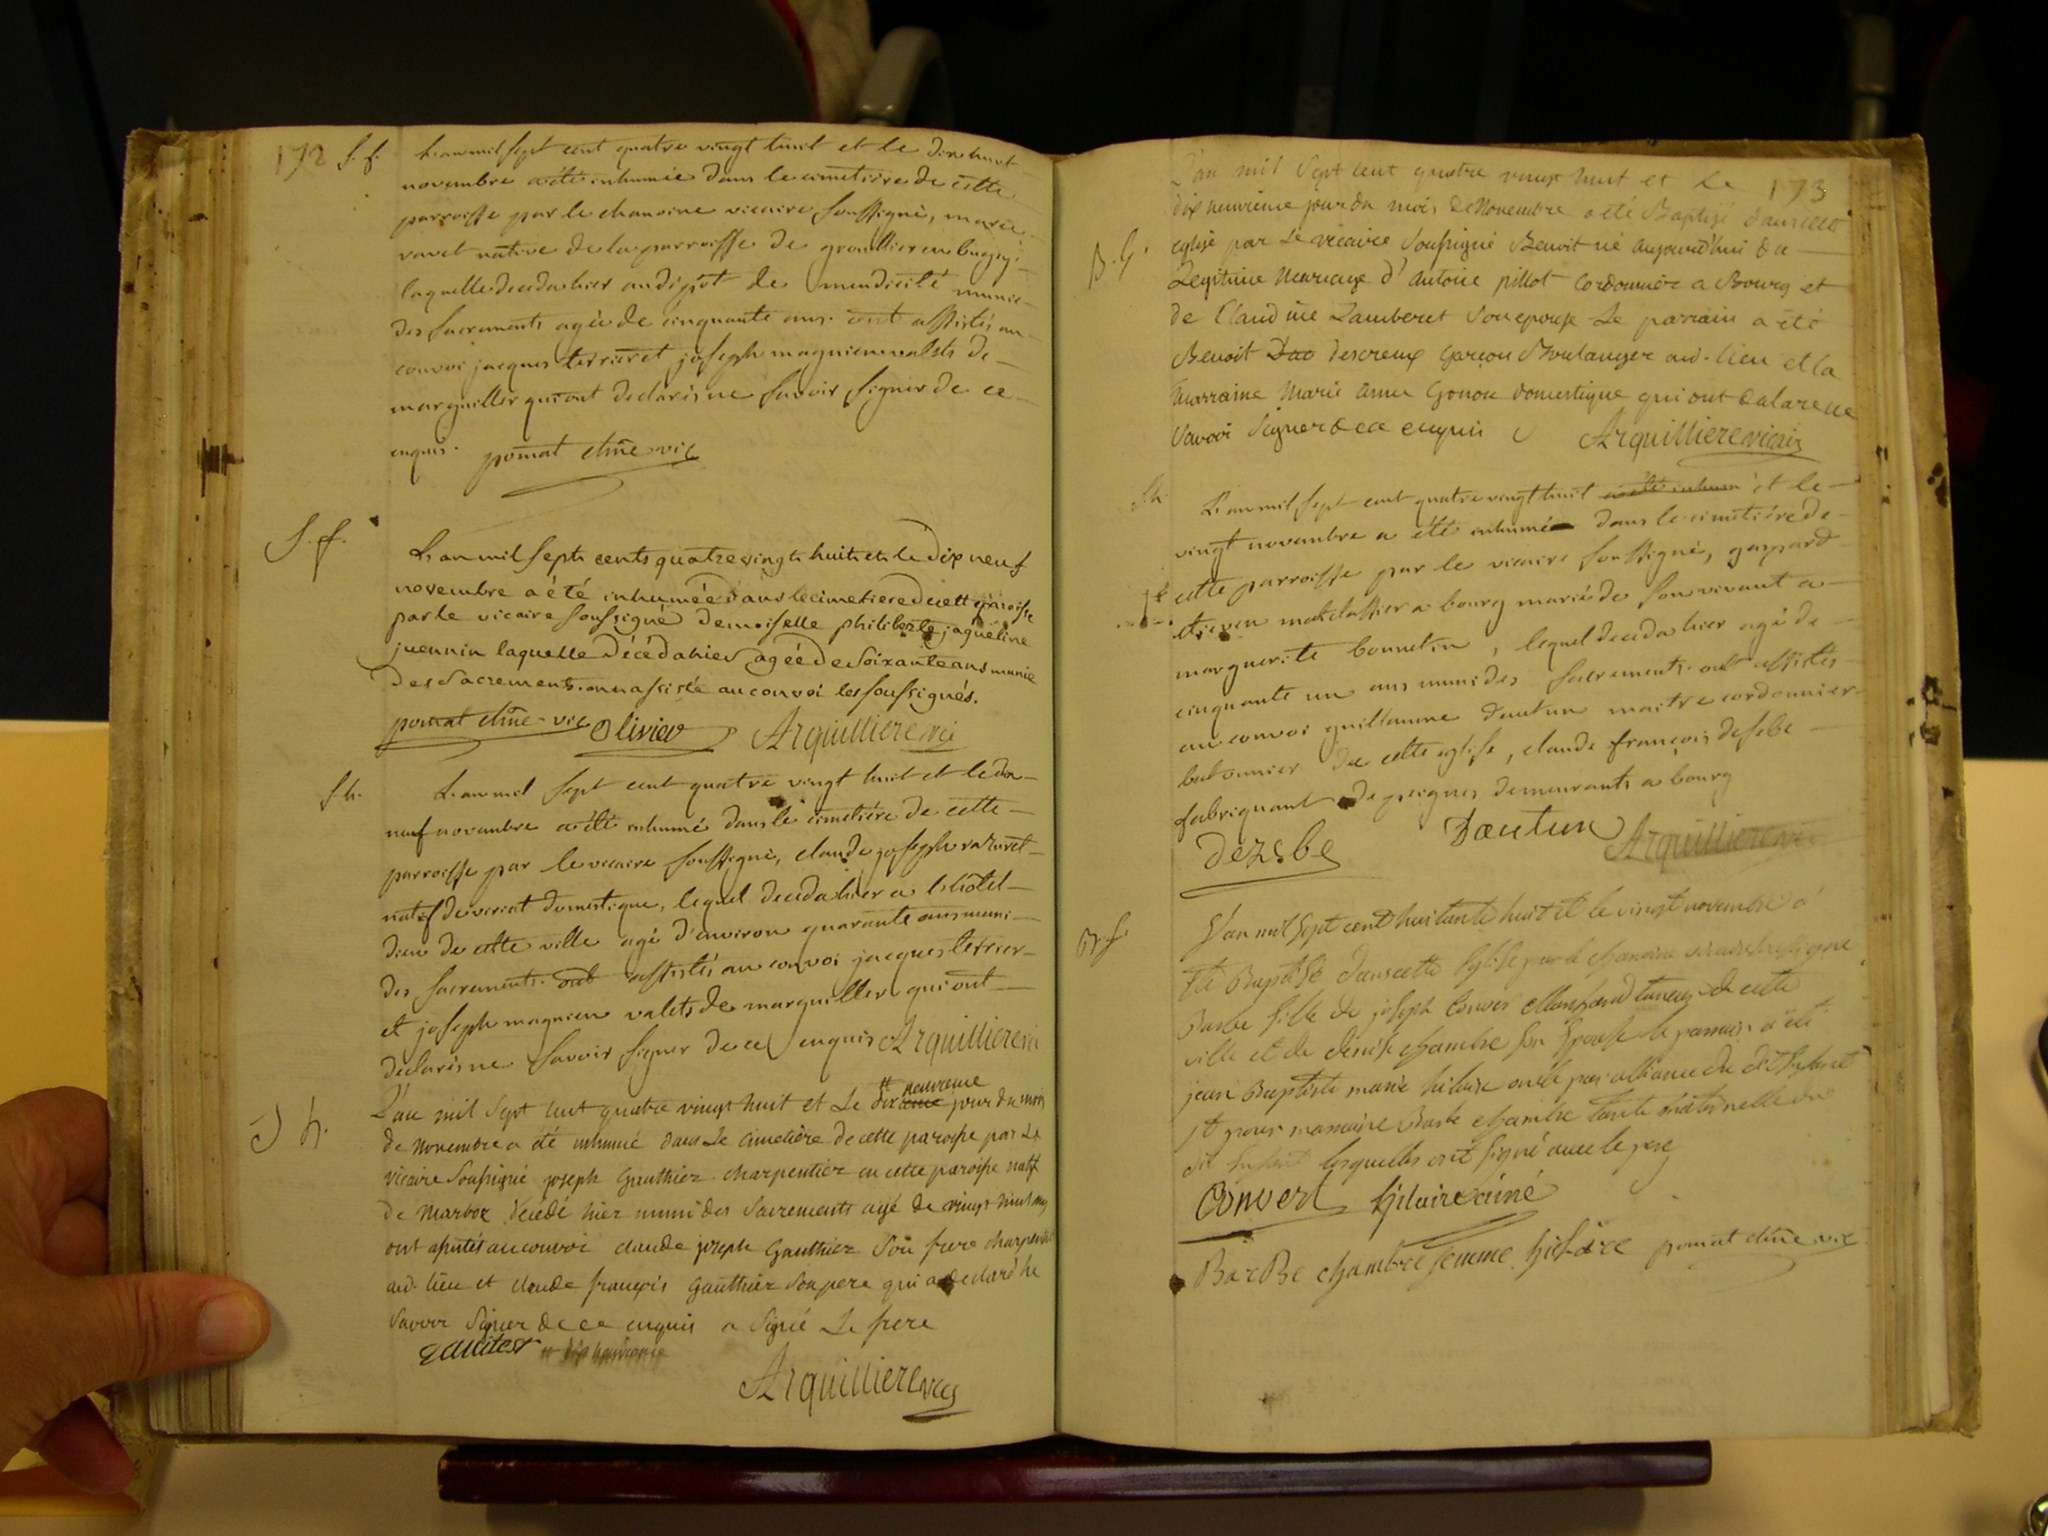 172 S. f.
L'an mil sept cent quatre vingt huit et le dix huit
novembre a été inhumée dans le cimetière de cette
parroisse par le chanoine vicaire soussigné, marie
ravet native de la parroisse de en bugey
laquelle deceda hier au dépot de mendicité munie
des sacrements agée de cinquante ans. ont assistés au
convoi jacques terrier et joseph magnien valets de
marguiller qui ont declarés ne savoir signer de ce
enquis. pomat chne vic
S. f.
L'an mil sept cents quatre vingt huit et le dix neuf
novembre a été inhumée dans le cimetiere de cette paroisse
par le vicaire soussigné demoiselle philiberte jaqueline
juennin laquelle décéda hier agée de soixante ans munie
des sacrements. ont assisté au convoi les soussignés.
pomat chne vic Olivier Arquilliere vic
S. h.
L'an mil sept cent quatre vingt huit et le dix
neuf novembre a été inhumé dans le cimetière de cette
parroisse par le vicaire soussigné, claude joseph
natif de domestique, lequel deceda hier a l'hôtel
dieu de cette ville agé d'environ quarante ans muni
des sacrements ont assistés au convoi jacques terrier
et joseph magnien valets de marguiller qui ont
declarés ne savoir signer de ce enquis Arquilliere vic
S h.
neuvieme
L'an mil sept cent quatre vingt huit et Le dix jour du mois
de novembre a été inhumé dans Le cimetière de cette paroisse par Le
vicaire soussigné joseph Gauthier charpentier en cette paroisse natif
de Marboz décédé hier muni des sacrements agé de vingt huit ans
ont assistés au convoi claude joseph Gauthier son frere charpentier
aud. lieu et claude françois Gauthier son pere qui a declaré ne
savoir signer de ce enquis a signé Le frere
Arquilliere vic
173
L'an mil sept cent quatre vingt huit et Le
dix neuvieme jour du mois de Novembre a été Baptisé dans cette
B. G.
eglise par Le vicaire soussigné Benoit né aujourd'hui du
Legitime mariage d'antoine pillot cordonnier a Bourg et
de Claudine Lamberet son epouse Le parrain a été
Benoit descreux garçon Boulanger aud. lieu et la
marraine Marie anne Gonou domestique qui ont declaré ne
savoir signer de ce enquis Arquilliere vicaire
S h.
L'an mil sept cent quatre vingt huit a été inhum et le
vingt novembre a été inhumé dans le cimetière de
cette parroisse par le vicaire soussigné, gaspard
etieven matelassier a bourg marié de son vivant a
marguerite bonnetin, lequel deceda hier agé de
cinquante un ans muni des sacrements. ont assistés
au convoi guillaume dautun maitre cordonnier
batonnier de cette eglise, claude françois desebe
fabriquant de peignes demeurants a bourg
Dezebe Dautun Arquilliere vic
B. f.
L'an mil sept cent huitante huit et le vingt novembre a
été Baptisé dans cette Eglise par le chanoine vicaire soussigné
Barbe fille de joseph Convert marchand taneur de cette
ville et de denise chambre son Epouse le parrain a été
jean Baptiste marie hilaire oncle par alliance du dit Enfant
et pour marraine Barbe chambre tante maternelle du
dit Enfant lesquelles ont signé avec le pere
Convert hilaire ainé
BarBe chambre femme hilaire pomat chne vic